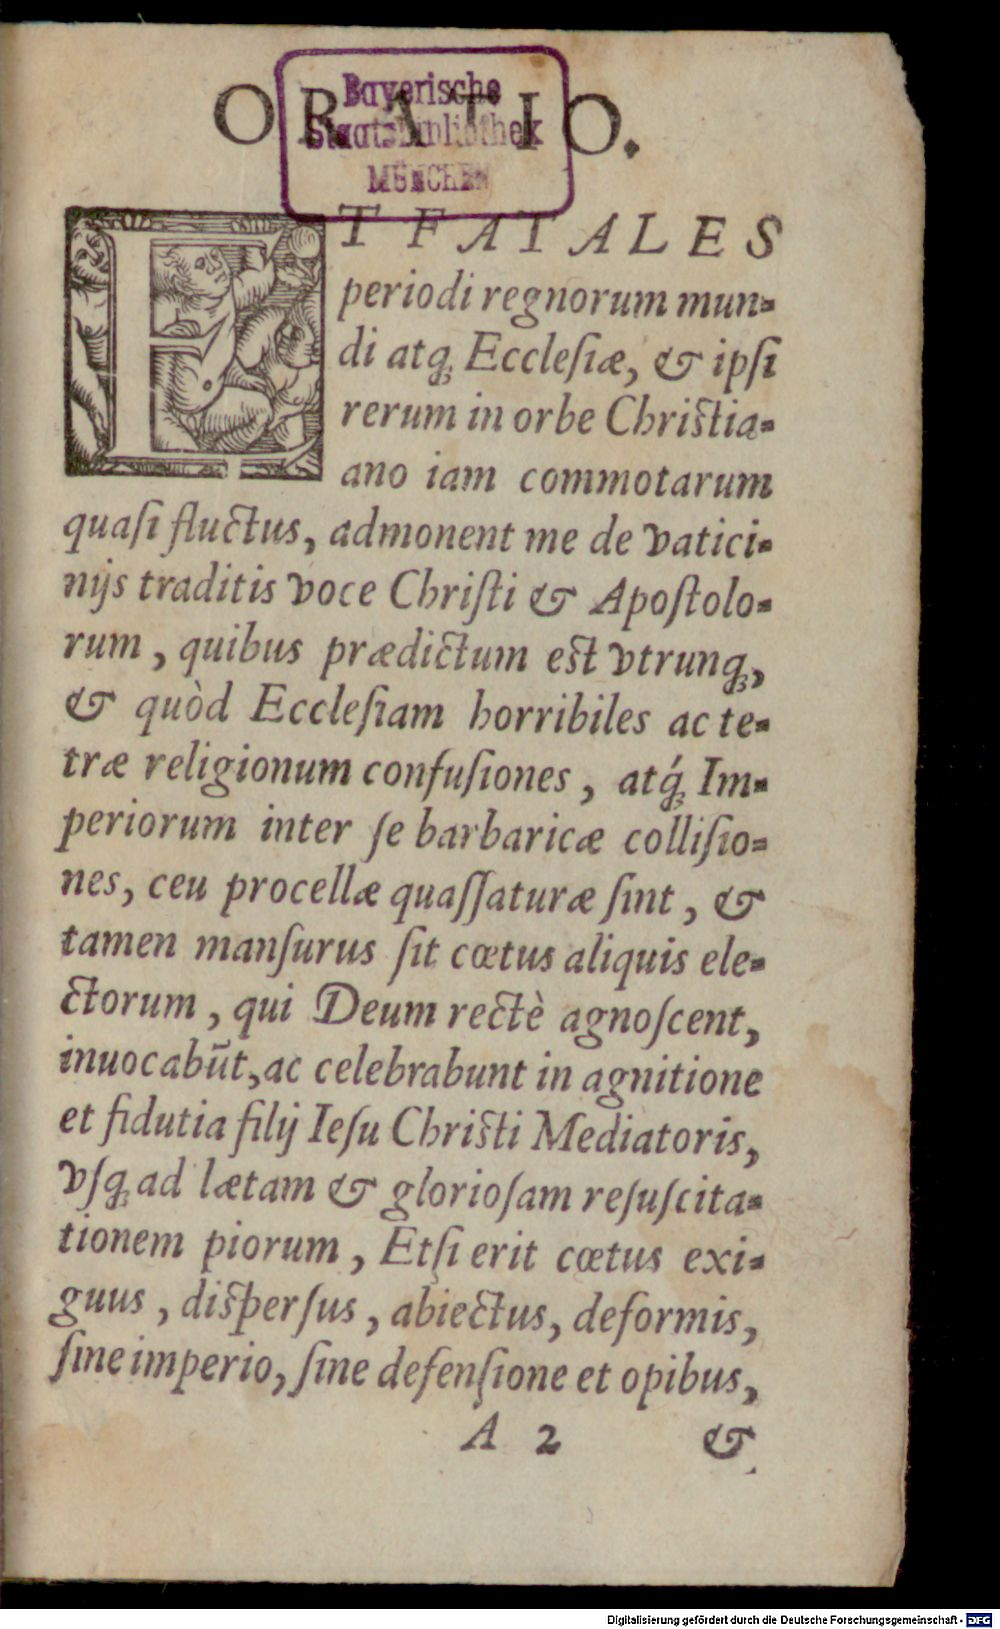 ORATIO.
Bayerische
Staatsbibliothek
MÜNCHEN
ET FATALES
periodi regnorum mun-
di atqꝫ Ecclesiæ, & ipſi
rerum in orbe Chriſtia-
ano iam commotarum
quaſi fluctus, admonent me de vatici-
nijs traditis voce Chriſti & Apoſtolo-
rum, quibus prædictum eſt vtrunqꝫ,
& quòd Eccleſiam horribiles ac te-
træ religionum confuſiones, atq́ꝫ Im-
periorum inter ſe barbaricæ colliſio-
nes, ceu procellæ quaſſaturæ ſint, &
tamen manſurus ſit cœtus aliquis ele-
ctorum, qui Deum rectè agnoſcent,
inuocabūt, ac celebrabunt in agnitione
et fidutia filij Ieſu Chriſti Mediatoris,
vſqꝫ ad lætam & glorioſam reſuſcita-
tionem piorum, Etſi erit cœtus exi-
guus, diſperſus, abiectus, deformis,
ſine imperio, ſine defenſione et opibus,
A 2 &
Digitalisierung gefördert durch die Deutsche Forschungsgemeinschaft - DFG